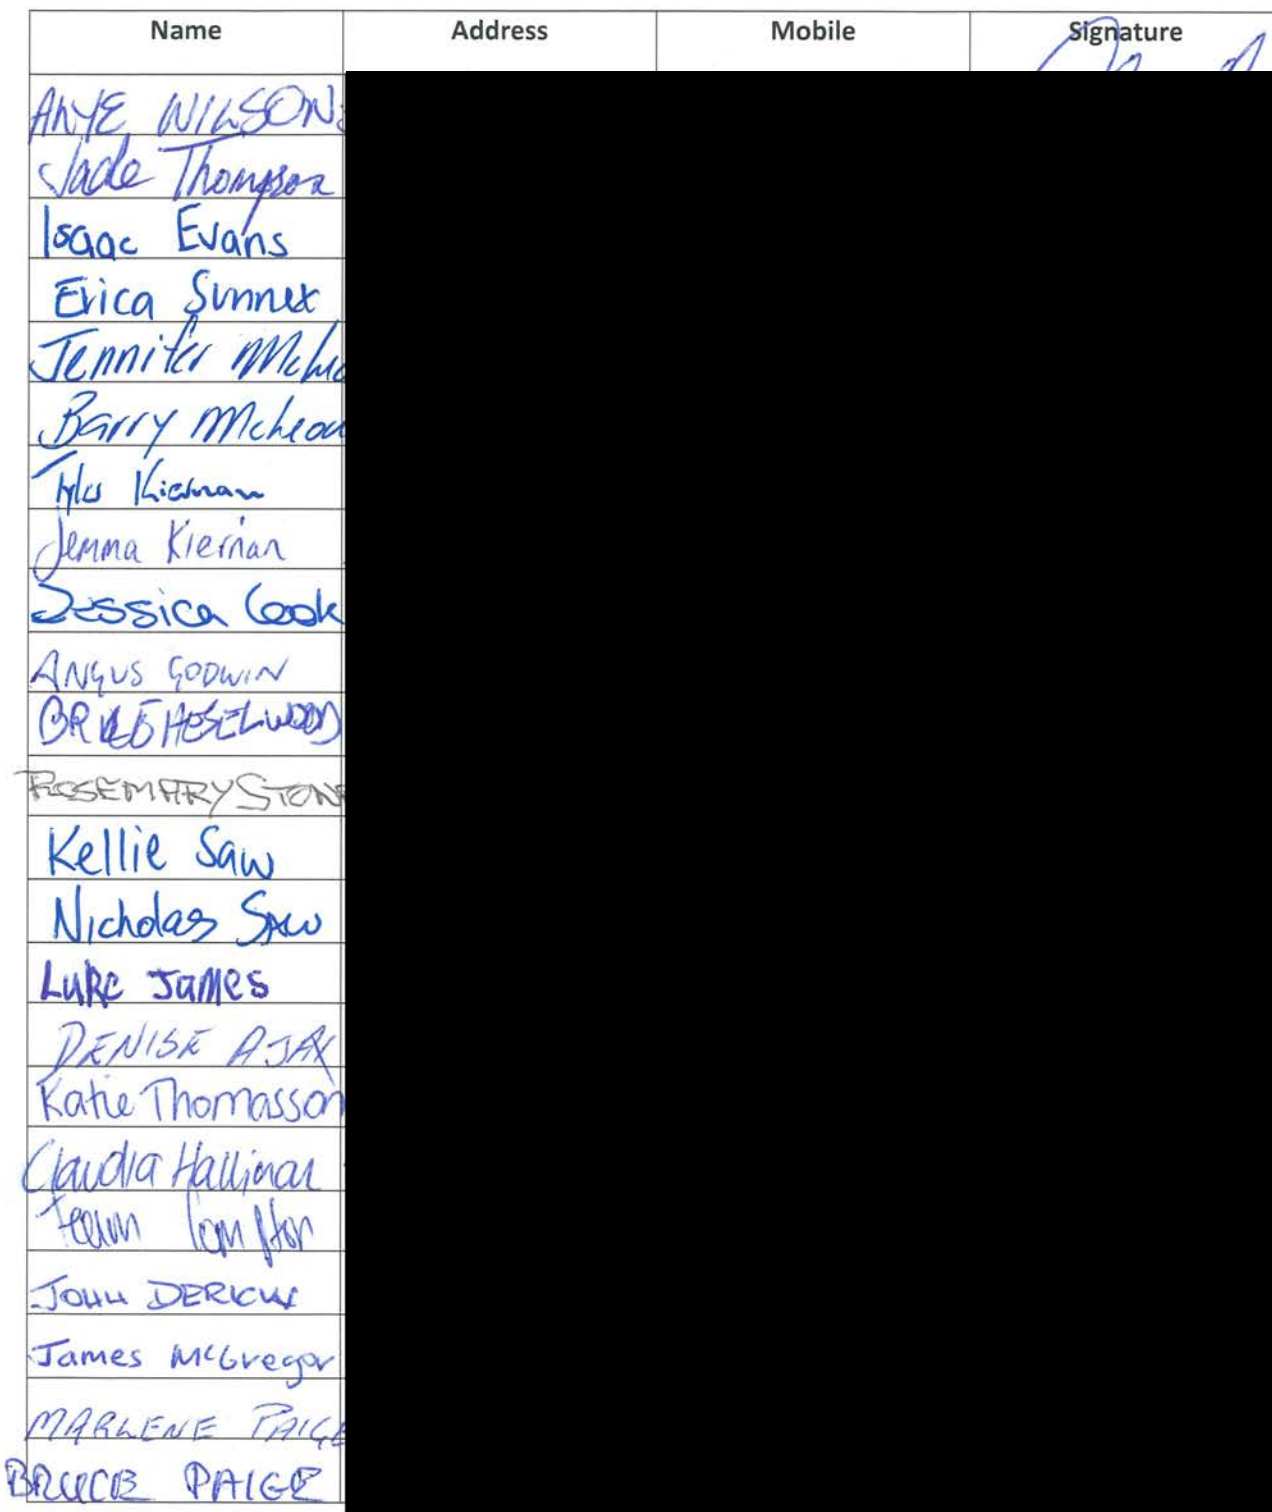 Name Address Mobile Signature
ANYE WILSON
Jade Thompson
Isaac Evans
Erica Sunnex
Jennifer McLeo
Barry McLeod
Tyler Kiernan
Jemma Kiernan
Jessica Cook
ANGUS GODWIN
BRUCE HESELWOOD
ROSEMARY STONE
Kellie Saw
Nicholas SAW
LUKE JAMES
DENISE AJAX
Katie Thomasson
Claudia Hallinan
JOHN
James McGregor
MARLENE PAIGE
BRUCE PAIGE